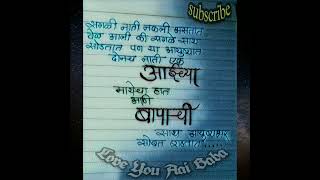 subscribe
सगळी नाती नकली असतात
वेळ आली की सगळे साथ
सोडतात पण या आयुष्यात
दोनच नाती एक
आईच्या
मायेचा हात
आणि
बापाची
साथ आयुष्यभर
सोबत राहतात......
Love You Aai Baba